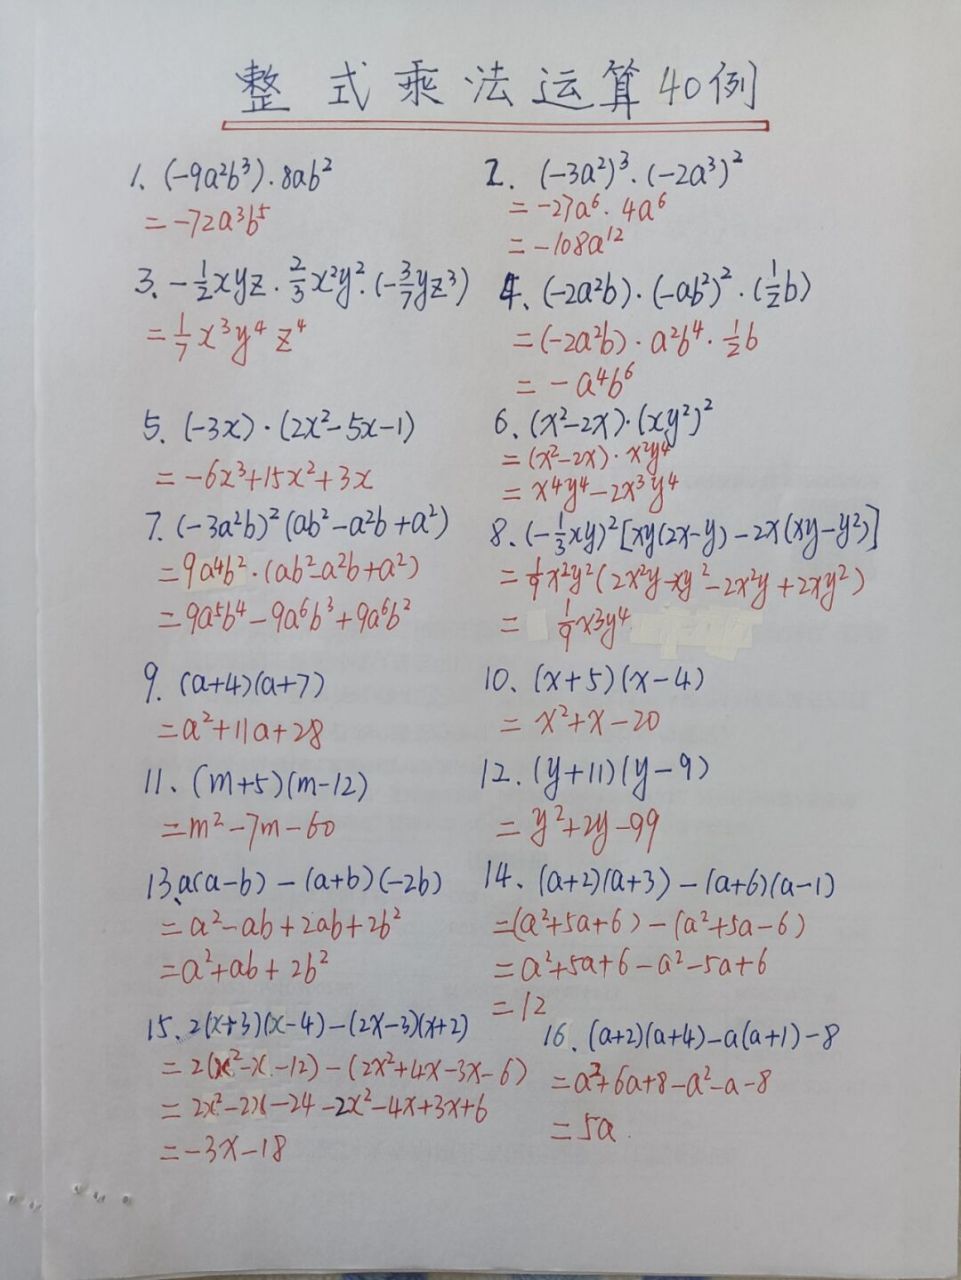 整式乘法运算40例
1、(-9a²b³)·8ab²
=-72a³b⁵
2、(-3a²)³·(-2a³)²
=-27a⁶·4a⁶
=-108a¹²
3、-1/2xyz·2/3x²y²·(-3/7yz³)
=1/7x³y⁴z⁴
4、(-2a²b)·(-ab²)²·(1/2b)
=(-2a²b)·a²b⁴·1/2b
=-a⁴b⁶
5、(-3x)·(2x²-5x-1)
=-6x³+15x²+3x
6、(x²-2x)·(xy²)²
=(x²-2x)·x²y⁴
=x⁴y⁴-2x³y⁴
7、(-3a²b)²(ab²-a²b+a²)
=9a⁴b²·(ab²-a²b+a²)
=9a⁵b⁴-9a⁶b³+9a⁶b²
8、(-1/3xy)²[xy(2x-y)-2x(xy-y²)]
=1/9x²y²(2x²y-xy²-2x²y+2xy²)
=1/9x3y⁴
9、(a+4)(a+7)
=a²+11a+28
10、(x+5)(x-4)
=x²+x-20
11、(m+5)(m-12)
=m²-7m-60
12、(y+11)(y-9)
=y²+2y-99
13、a(a-b)-(a+b)(-2b)
=a²-ab+2ab+2b²
=a²+ab+2b²
14、(a+2)(a+3)-(a+6)(a-1)
=(a²+5a+6)-(a²+5a-6)
=a²+5a+6-a²-5a+6
=12
15、2(x+3)(x-4)-(2x-3)(x+2)
=2(x²-x-12)-(2x²+4x-3x-6)
=2x²-2x-24-2x²-4x+3x+6
=-3x-18
16、(a+2)(a+4)-a(a+1)-8
=a²+6a+8-a²-a-8
=5a.